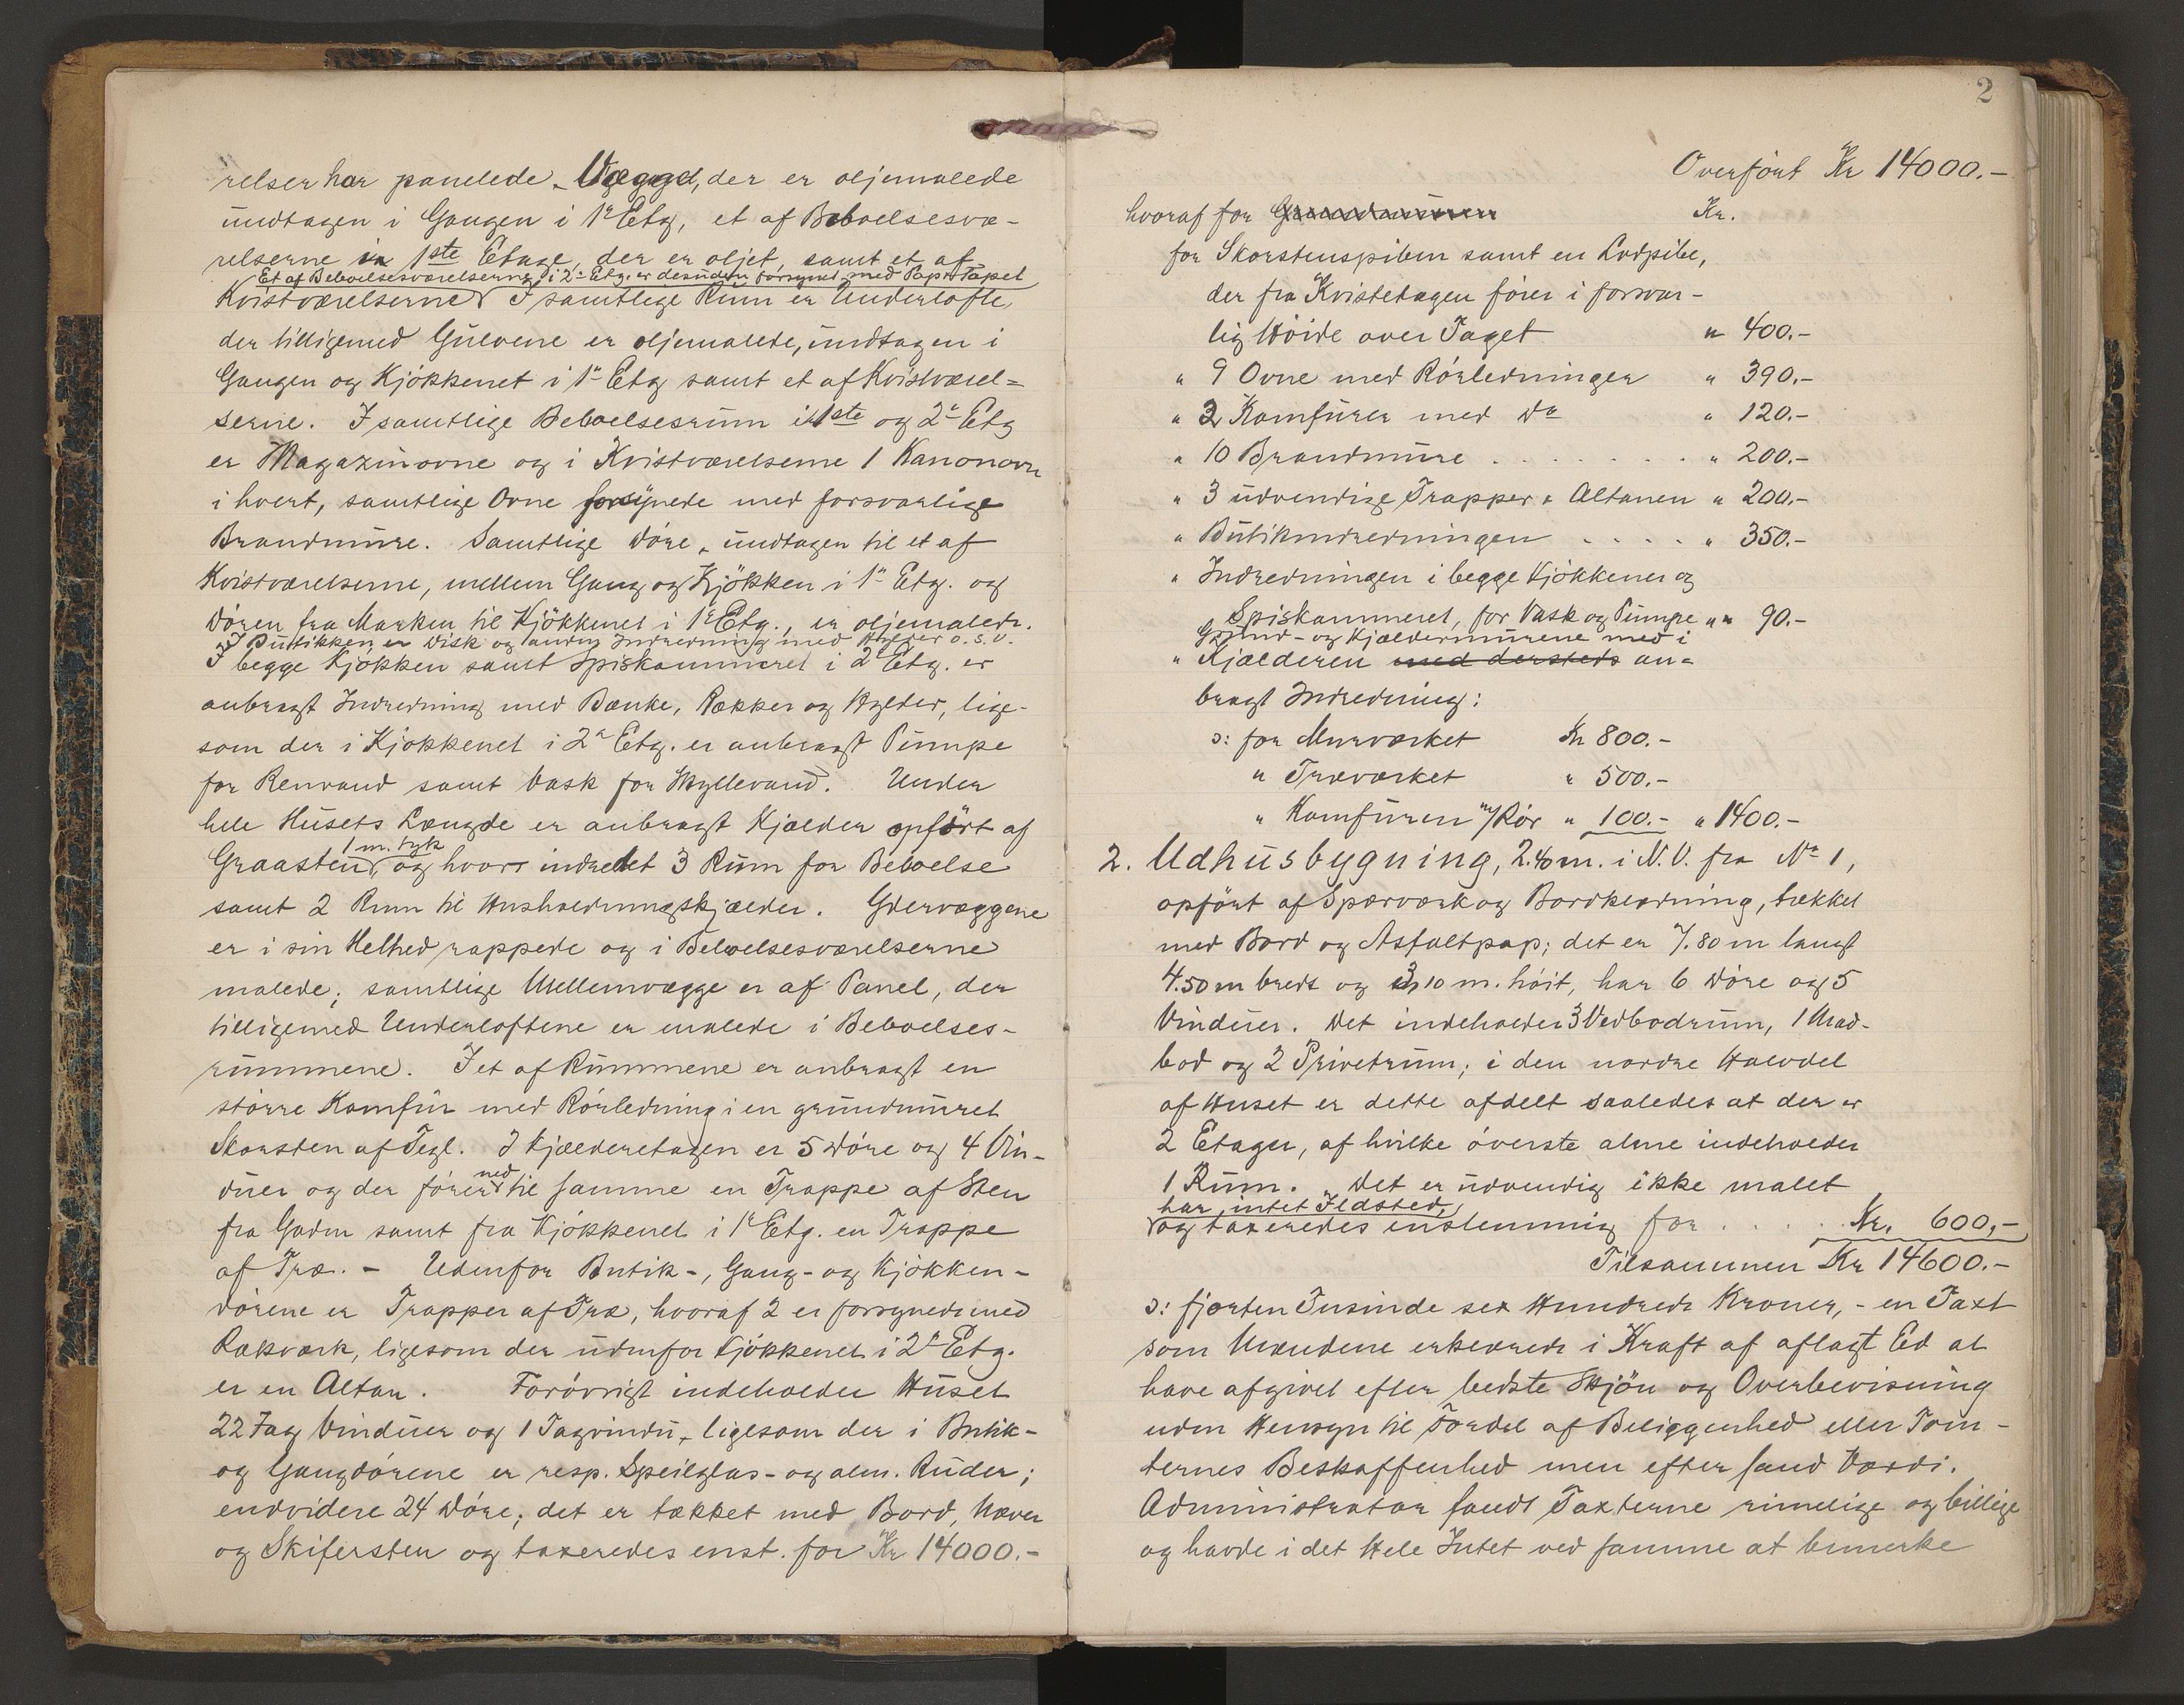 relser har panelede Vægge, der er oljemalede
undtagen i Gangen i 1e Etg, et af Beboelsesvæ-
relserne i 1ste Etage, der er oljet, samt et af
Et af Beboelsesværelserne i 2en Etg. er desuden forsynet med Papir Tapet
Kvistværelserne. I samtlige Rum er Underlofte
der tilligemed Gulvene er oljemalede, undtagen i
Gangen og Kjøkkenet i 1e Etg samt et af Kvistværel=
serne. I samtlige Beboelsesrum i 1ste og 2en Etg
er Magazinovne og i Kvistværelserne 1 Kanonovn
i hvert, samtlige Ovne forsynede med forsvarlige
Brandmure. Samtlige Døre, undtagen til et af
Kvistværelserne, mellem Gang og Kjøkken i 1e Etg. og
Døren fra Marken til Kjøkkenet i 1e Etg., er oljemalede.
I Butikken er Disk og anden Indredning med Hylder o.s.v.
I begge Kjøkken samt Spiskammeret i 2e Etg. er
anbragt Indredning med Bænke, Rækker og Hylder, lige-
som der i Kjøkkenet i 2e Etg. er anbragt Pumpe
for Renvand samt Vask for Skyllevand. Under
hele Husets Længde er anbragt Kjelder opført af
1 m. tyk
Graasten, og hvori indredet 3 Rum for Beboelse
samt 2 Rum til Husholdningskjælder. Ydervæggene
er i sin Helhed rappede og i Beboelsesværelserne
malede; samtlige Mellemvægge er af Panel, der
tilligemed Underloftene er malede i Beboelses-
rummene. I et af Rummene er anbragt en
større Komfur med Rørledning i en grundmuret
Skorsten af Tegl. I Kjælderetagen er 5 Døre og 4 Vin-
ned
duer og der fører til samme en Trappe af Sten
fra Gaden samt fra Kjøkkenet i 1e Etg. en Trappe
af Træ. - Udenfor Butik-, Gang- og Kjøkken-
dørene er Trapper af Træ, hvoraf 2 er forsynede med
Rækværk, ligesom der udenfor Kjøkkenet i 2e Etg.
er en Altan. Forøvrigt indeholder Huset
22 Fag Vinduer og 1 Tagvindu, ligesom der i Butik-
og Gangdørene er resp. Speilglas- og alm. Ruder;
endvidere 24 Døre; det er tækket med Bord, Næver
og Skifersten og taxeredes enst. for Kr 14000.-
2
Overført Kr 14000.-
hvoraf for Kr.
for Skorstenspiben samt en Lodpibe,
der fra Kvistetagen fører i forsvar-
lig Høide over Taget " 400.-
" 9 Ovne med Rørledninger " 390.-
" 2 Komfurer med Do " 120.-
" 10 Brandmure . . . . . . . " 200.-
" 3 udvendige Trapper & Altanen " 200.-
" Butikindredningen . . . . " 350.-
" Indredningen i begge Kjøkkener og
Spiskammeret, for Vask og Pumpe " " 90.-
Grund- og Kjældermurene med i
" Kjælderen med dersteds an=
bragt Indredning:
ɔ: for Murværket Kr 800.-
" Træværket " 500.-
" Komfuren m/Rør " 100.- " 1400.-
2. Udhusbygning, 2.40 m. i N.V. fra No 1,
opført af Spærværk og Bordklædning, tækket
med Bord og Asfaltpap; det er 7.80 m langt
4.50 m bredt og 3.10 m. høit, har 6 Døre og 5
Vinduer. Det indeholder 3 Vedbodrum, 1 Mad-
bod og 2 Privetrum; i den nordre Halvdel
af Huset er dette afdelt saaledes at der er
2 Etager, af hvilke øverste alene indeholder
1 Rum. Det er udvendig ikke malet
har intet Ildsted,
og taxeredes enstemmig for . . . . . Kr. 600,-
Tilsammen Kr 14600.-
ɔ: fjorten Tusinde sex Hundrede Kroner, - en Taxt
som Mændene erklærede i Kraft af aflagt Ed at
have afgivet efter bedste Skjøn og Overbevisning
uden Hensyn til Fordel af Beliggenhed eller Tom-
ternes Beskaffenhed men efter sand Værdi.
Administrator fandt Taxterne rimelige og billige
og havde i det Hele Intet ved samme at bemerke